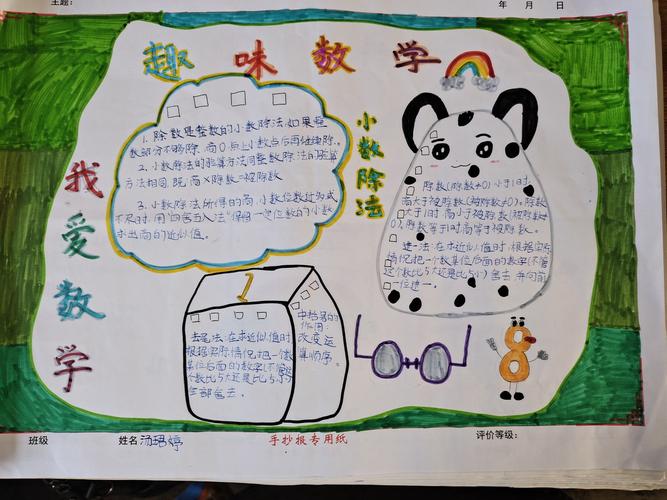 主题:
年 月 日
趣味数学
我爱数学
小数除法
1. 除数是整数的小数除法:如果整
数部分不够除,商0,点上小数点后再继续除。
2. 小数除法的验算方法同整数除法的验算
方法相同,既:商×除数=被除数
3. 小数除法所得的商,小数位数过多或
不尽时,用“四舍五入法”保留一定位数的小数
求出商的近似值。
除数(除数≠0)小于1时,
商大于被除数(被除数≠0),除数
大于1时,商小于被除数(被除数
≠0),除数等于1时商等于被除数。
进一法:在求近似值时,根据实际
情况,把一个数某位后面的数字(不管
这个数比5大还是比5小)舍去,并向前
一位进一。
1
去尾法:在求近似值时
根据实际情况,把一个数
某位后面的数字(不管这
个数比5大还是比5小)
全部舍去。
中括号的
作用:
改变运
算顺序。
8
班级 姓名 汤珺婷 手抄报专用纸 评价等级: